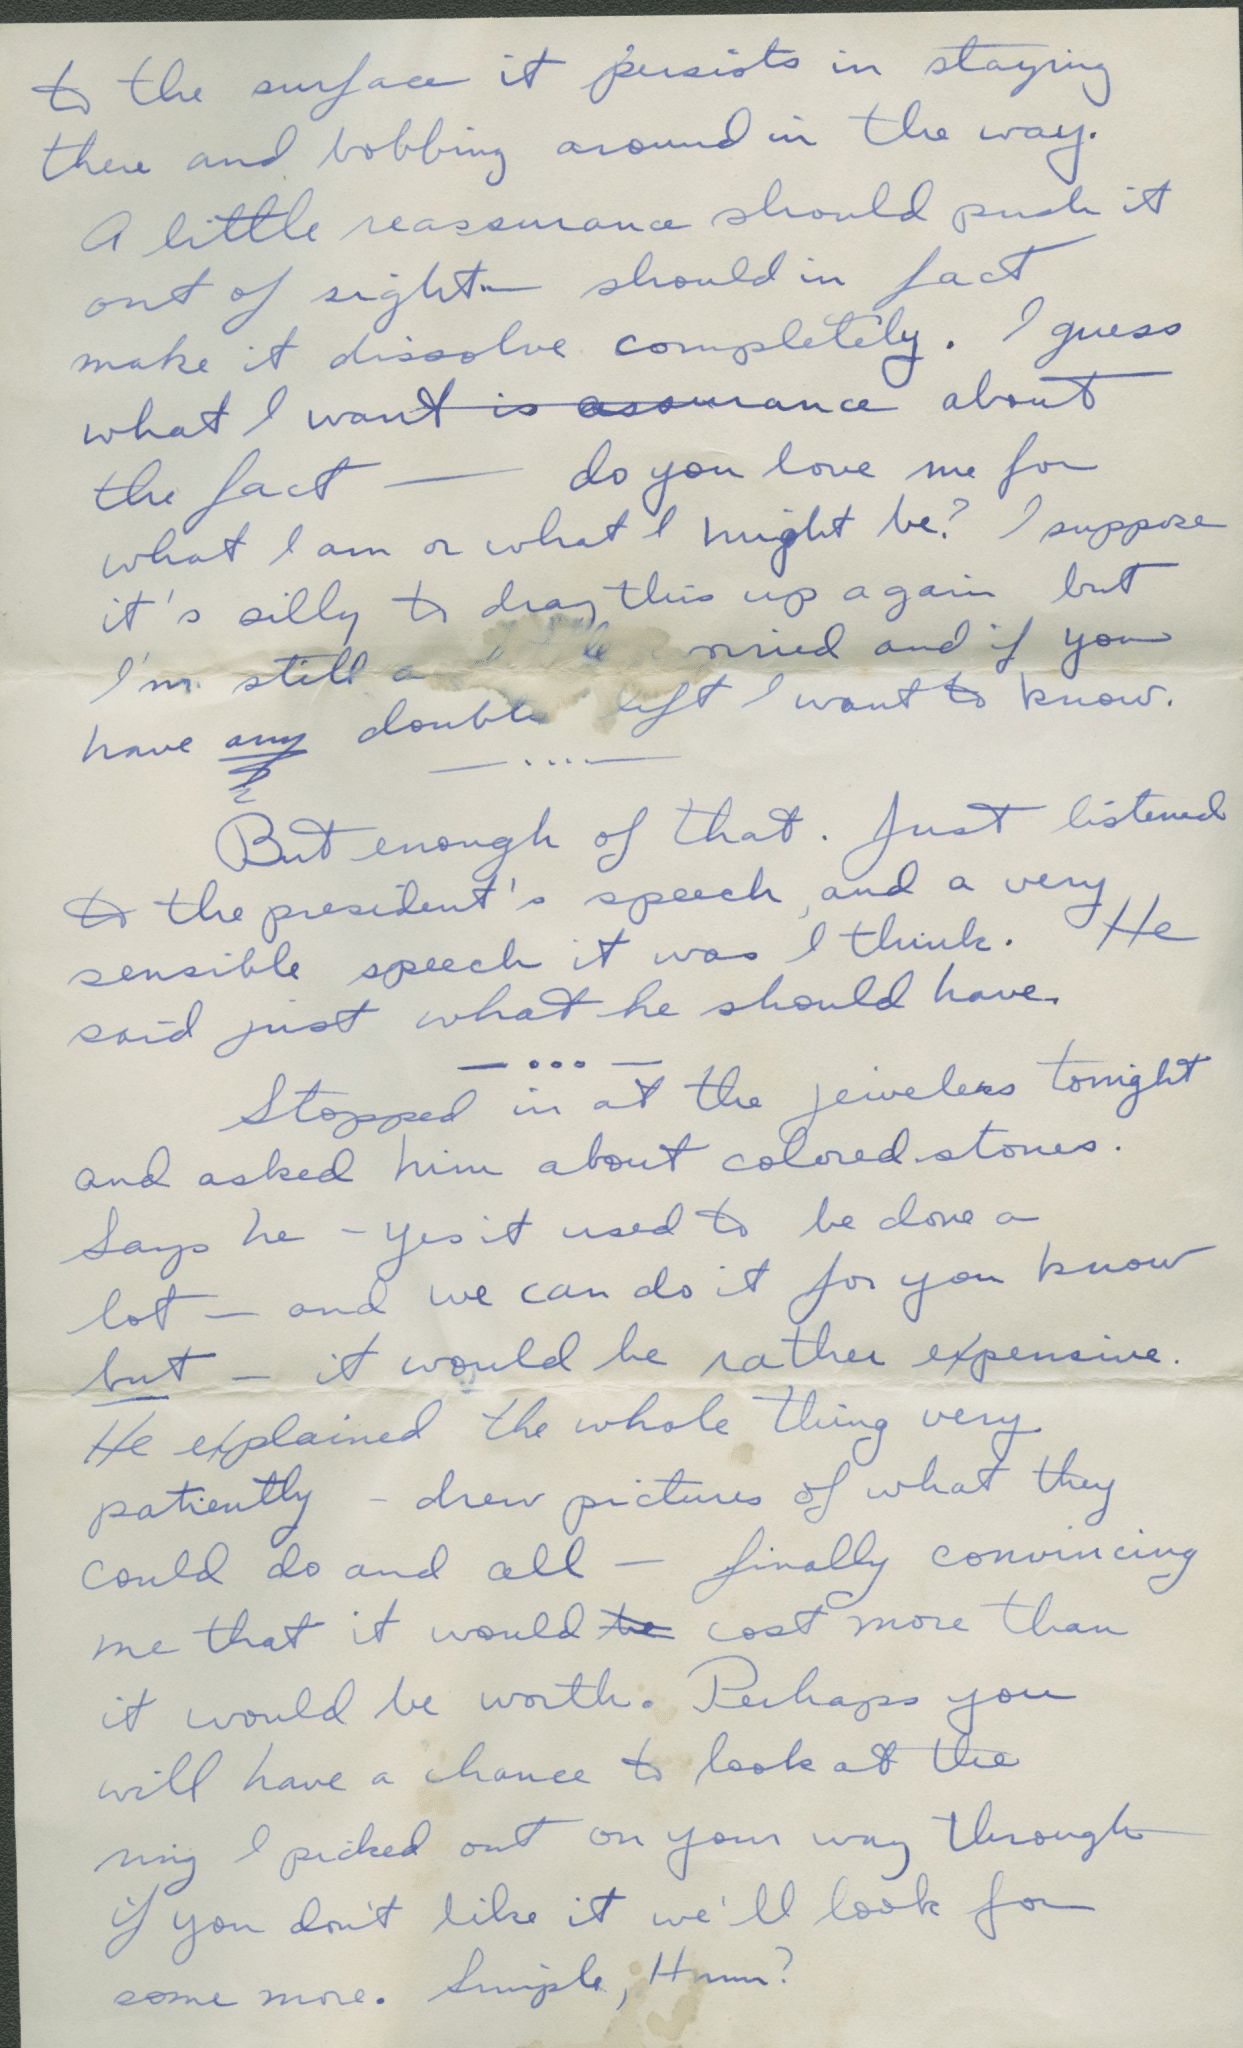 to the surface it persists in staying
there and bobbing around in the way.
A little reassurance should push it
out of sight — should in fact
make it dissolve completely. I guess
what I want is assurance about
the fact — do you love me for
what I am or what I might be? I suppose
it's silly to drag this up again but
I'm still a worried and if you
have any doubts left I want to know.
— .... —
But enough of that. Just listened
to the president's speech, and a very
sensible speech it was I think. He
said just what he should have.
— ... —
Stopped in at the jewelers tonight
and asked him about colored stones.
Says he - yes it used to be done a
lot — and we can do it for you know
but — it would be rather expensive.
He explained the whole thing very
patiently - drew pictures of what they
could do and all — finally convincing
me that it would be cost more than
it would be worth. Perhaps you
will have a chance to look at the
ring I picked out on your way through
if you don't like it we'll look for
some more. Simple, Hmm?